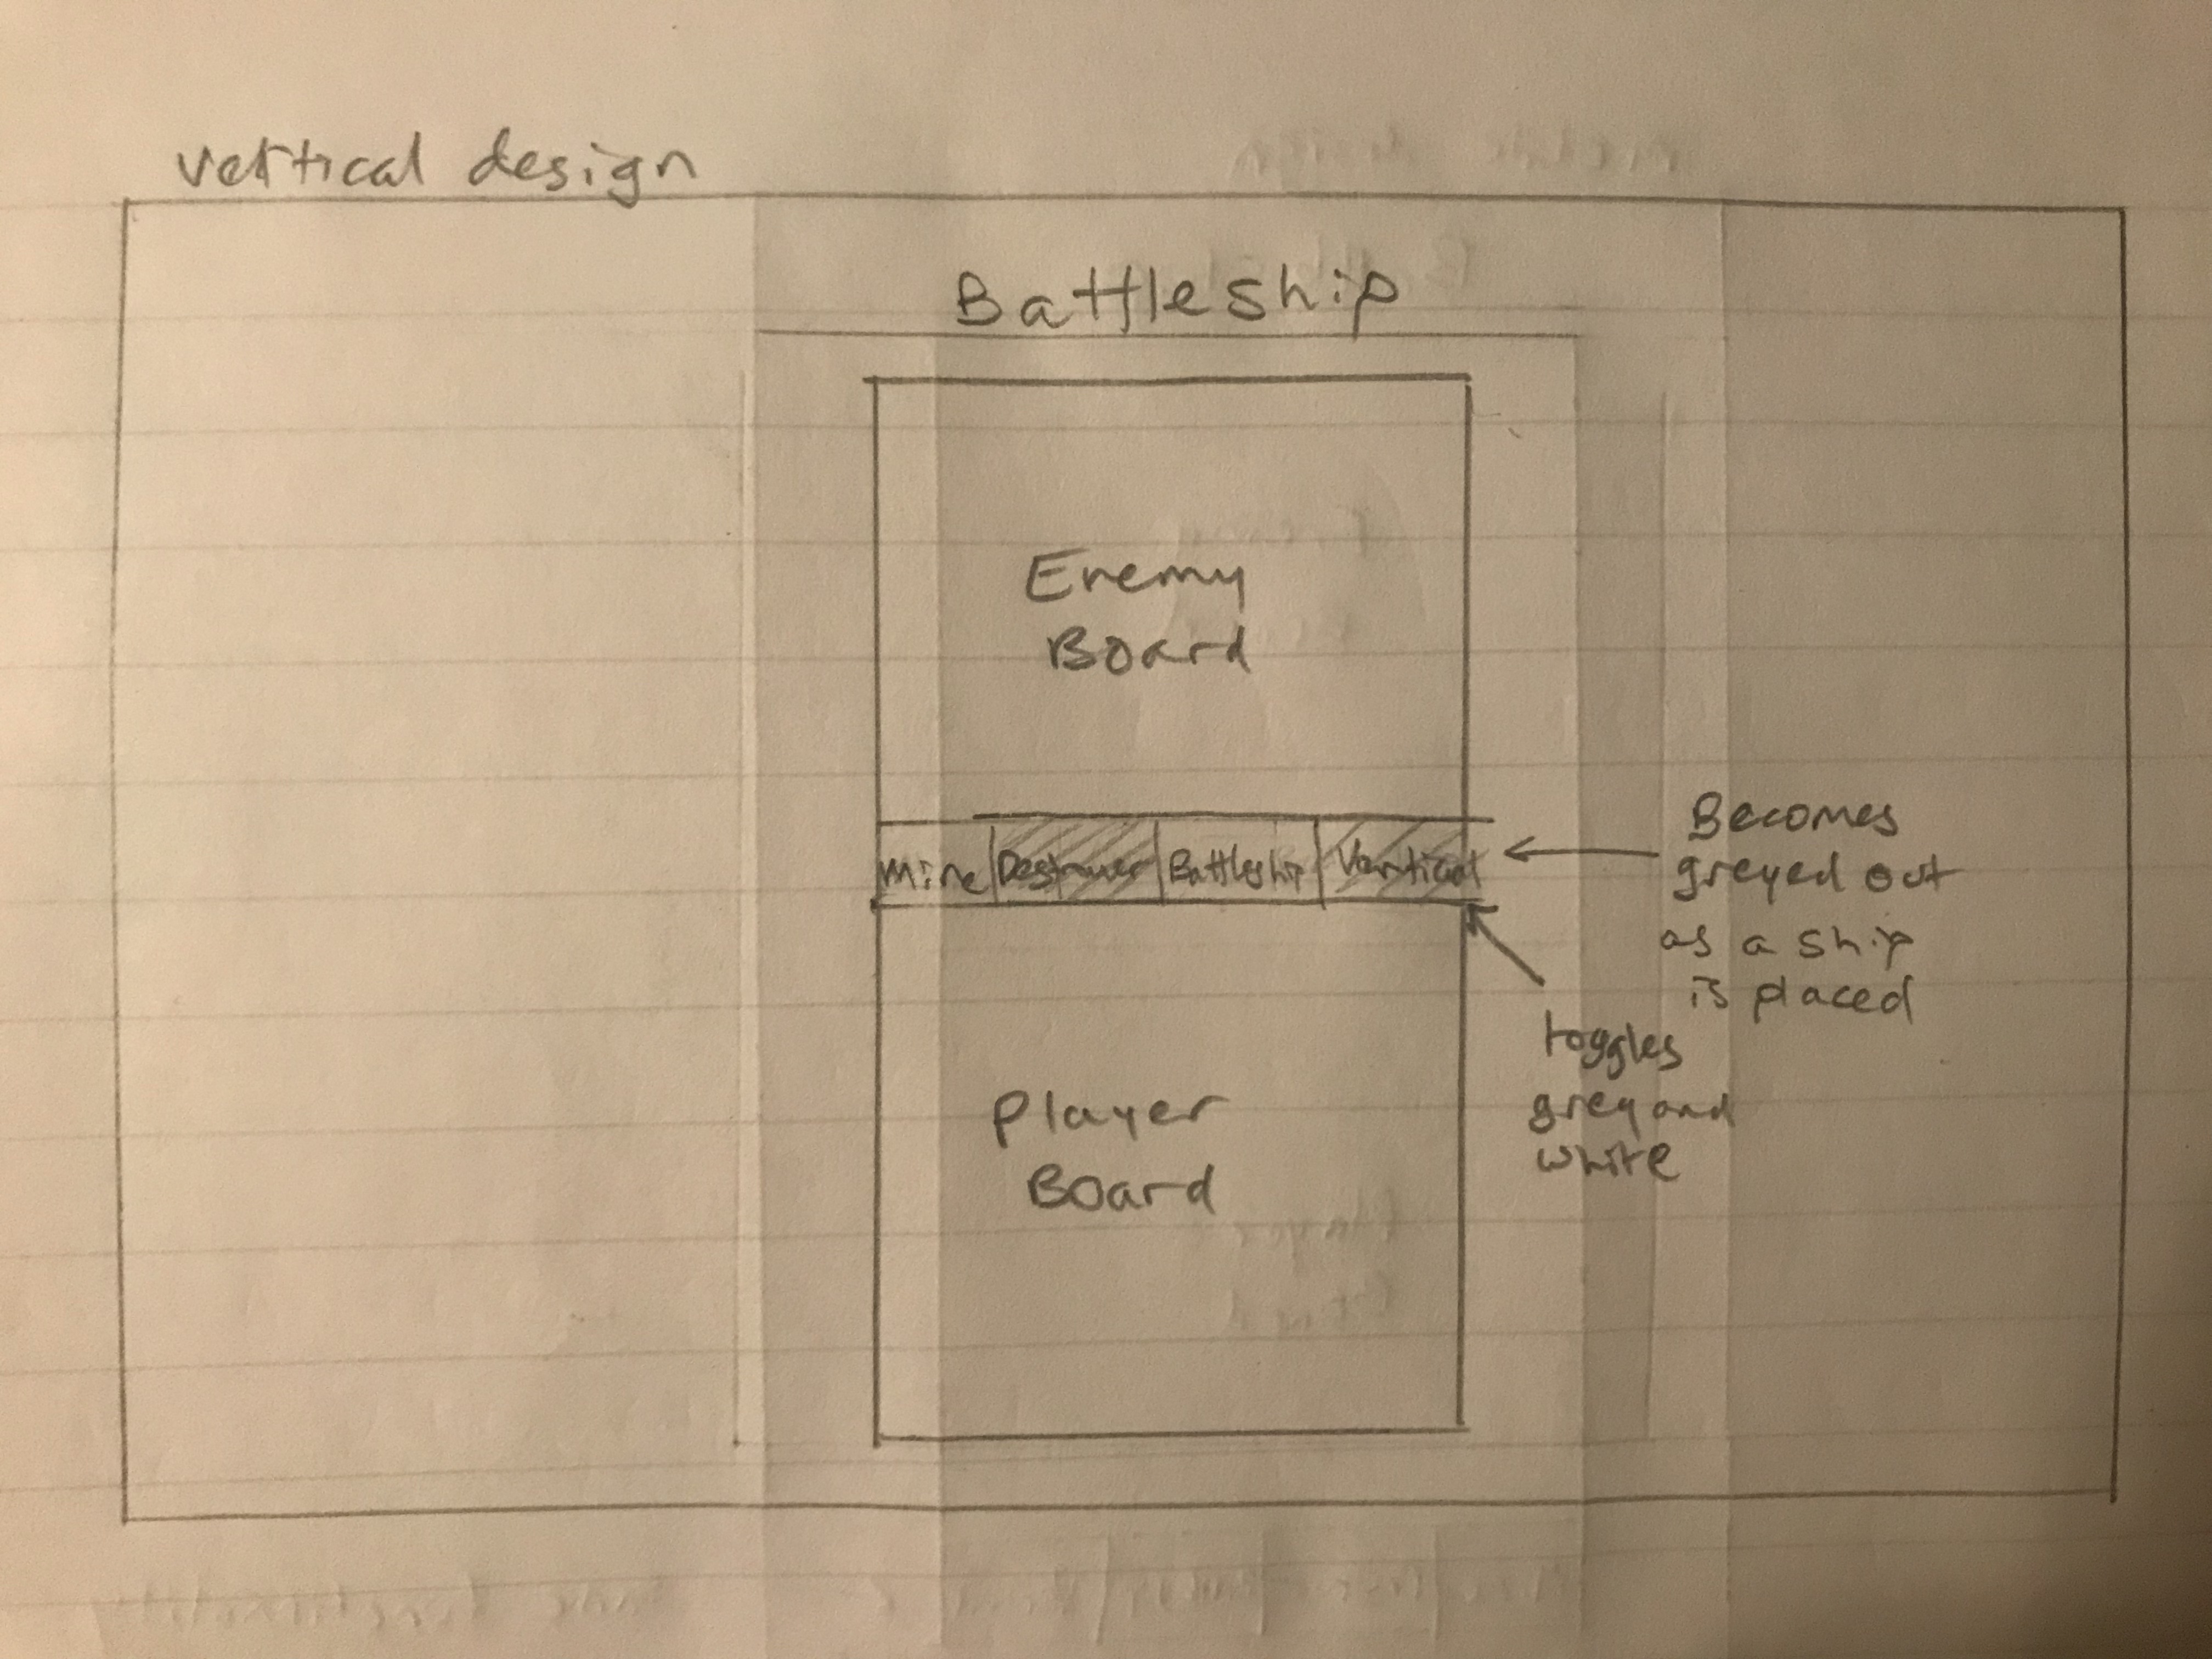 vertical design
Battleship
Enemy
Board
Mine Destroyer Battleship Vertical
Becomes
greyed out
as a ship
is placed
toggles
grey and
white
Player
Board